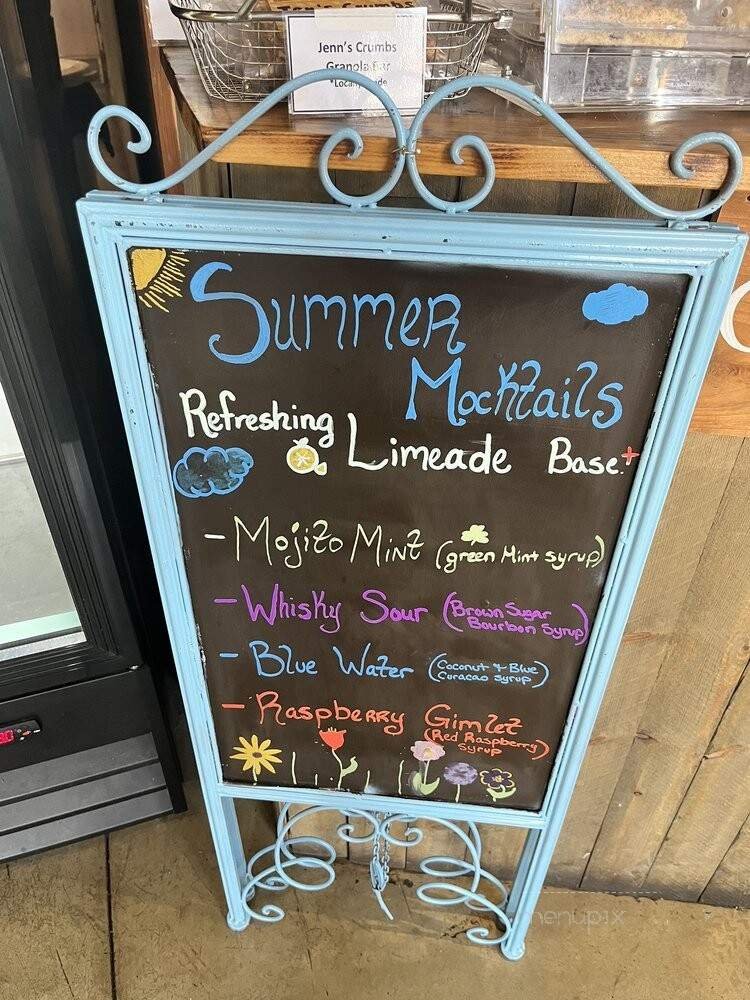 Jenn's Crumbs
Granola Bar
Summer
Mocktails
Refreshing
Limeade Base.+
- Mojito Mint (green Mint syrup)
- Whisky Sour (Brown Sugar
Bourbon Syrup)
- Blue Water (Coconut & Blue
Curacao syrup)
- Raspberry Gimlet
(Red Raspberry)
syrup
menupix